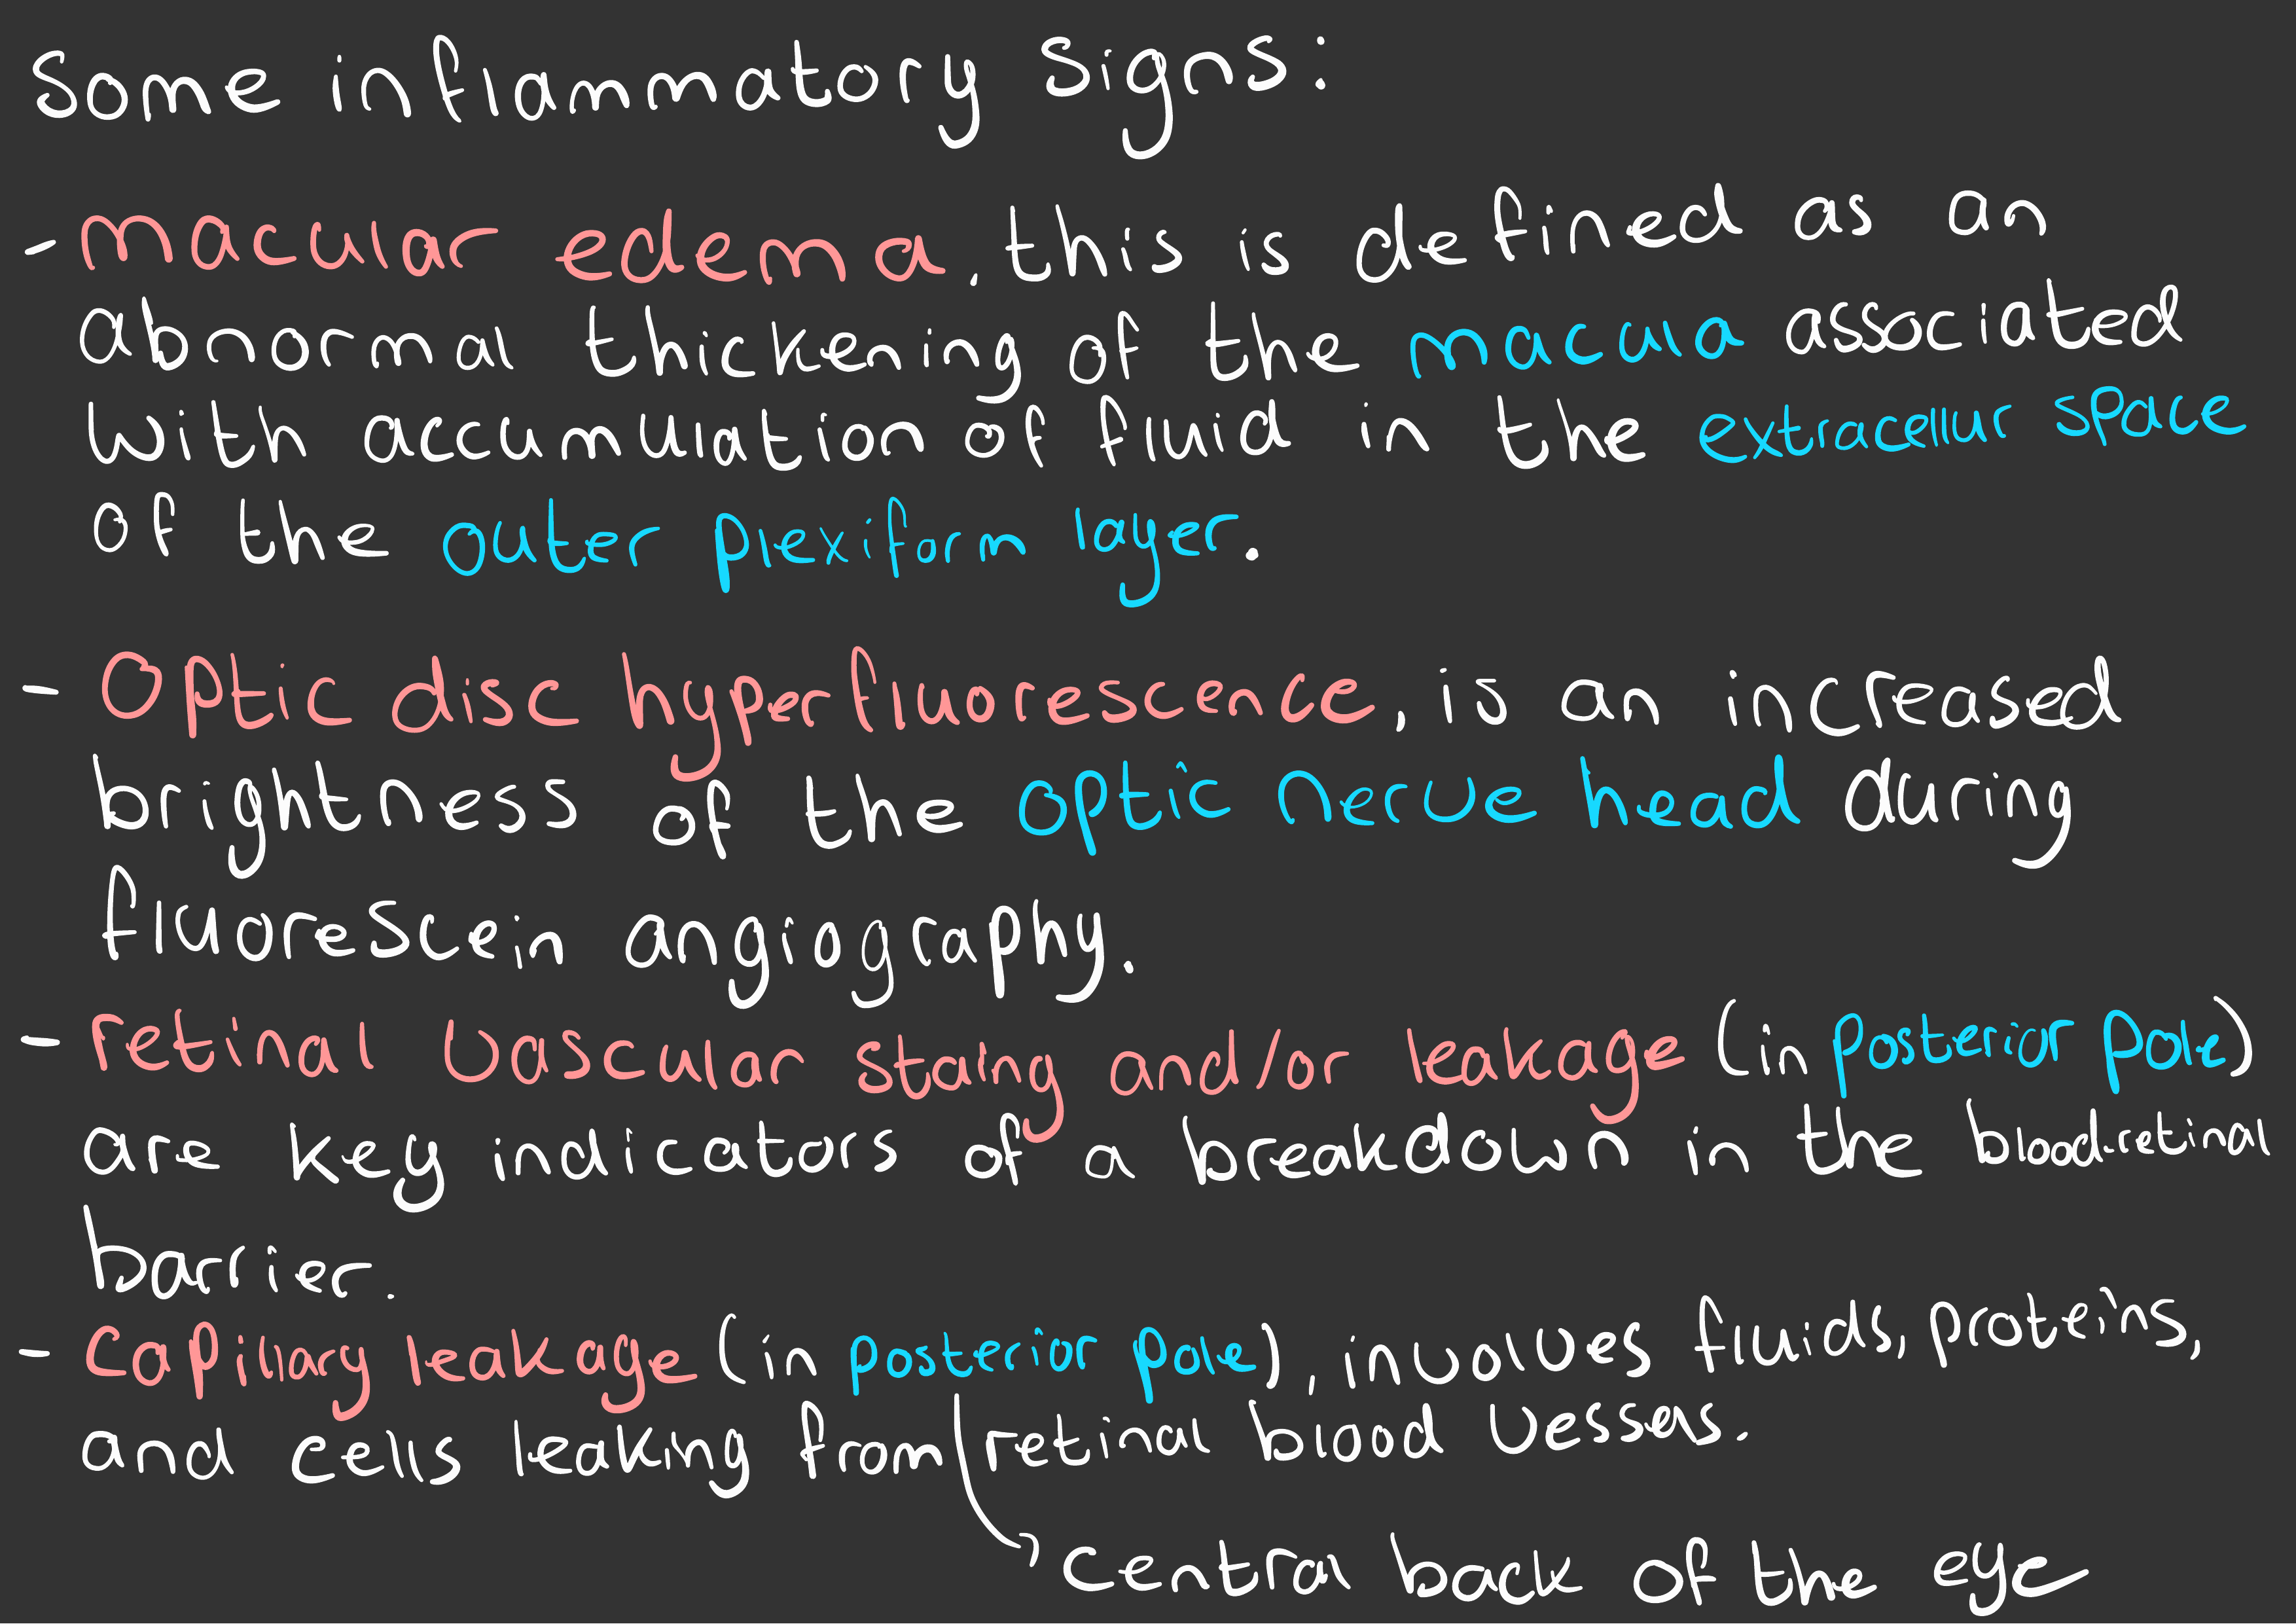 Some inflammatory signs:
- macular edema, this is defined as an
abnormal thickening of the macula associated
with accumulation of fluid in the extracellur space
of the outer plexiform layer.
- Optic disc hyperfluorescence, is an increased
brightness of the optic nerve head during
fluorescein angiography.
- retinal vascular staing and/or leakage (in posterior pole)
are key indicators of a breakdown in the blood-retinal
barrier.
- Capillary leakage (in posterior pole), involves fluids, proteins,
and cells leaking from retinal blood vessels.
central back of the eye